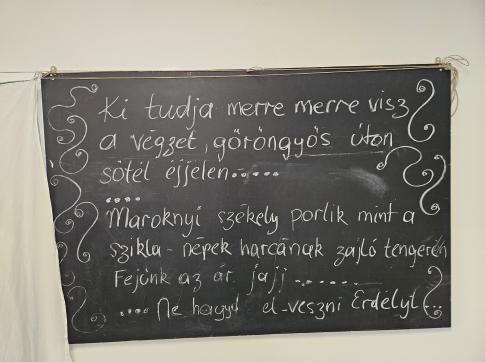 Ki tudja merre merre visz
a végzet, göröngyös úton
sötét éjjelen.....
....
Maroknyi székely porlik mint a
szikla - népek harcának zajló tengerén
Fejünk az ár jajj ......
.... Ne hagyd el-veszni Erdélyt...